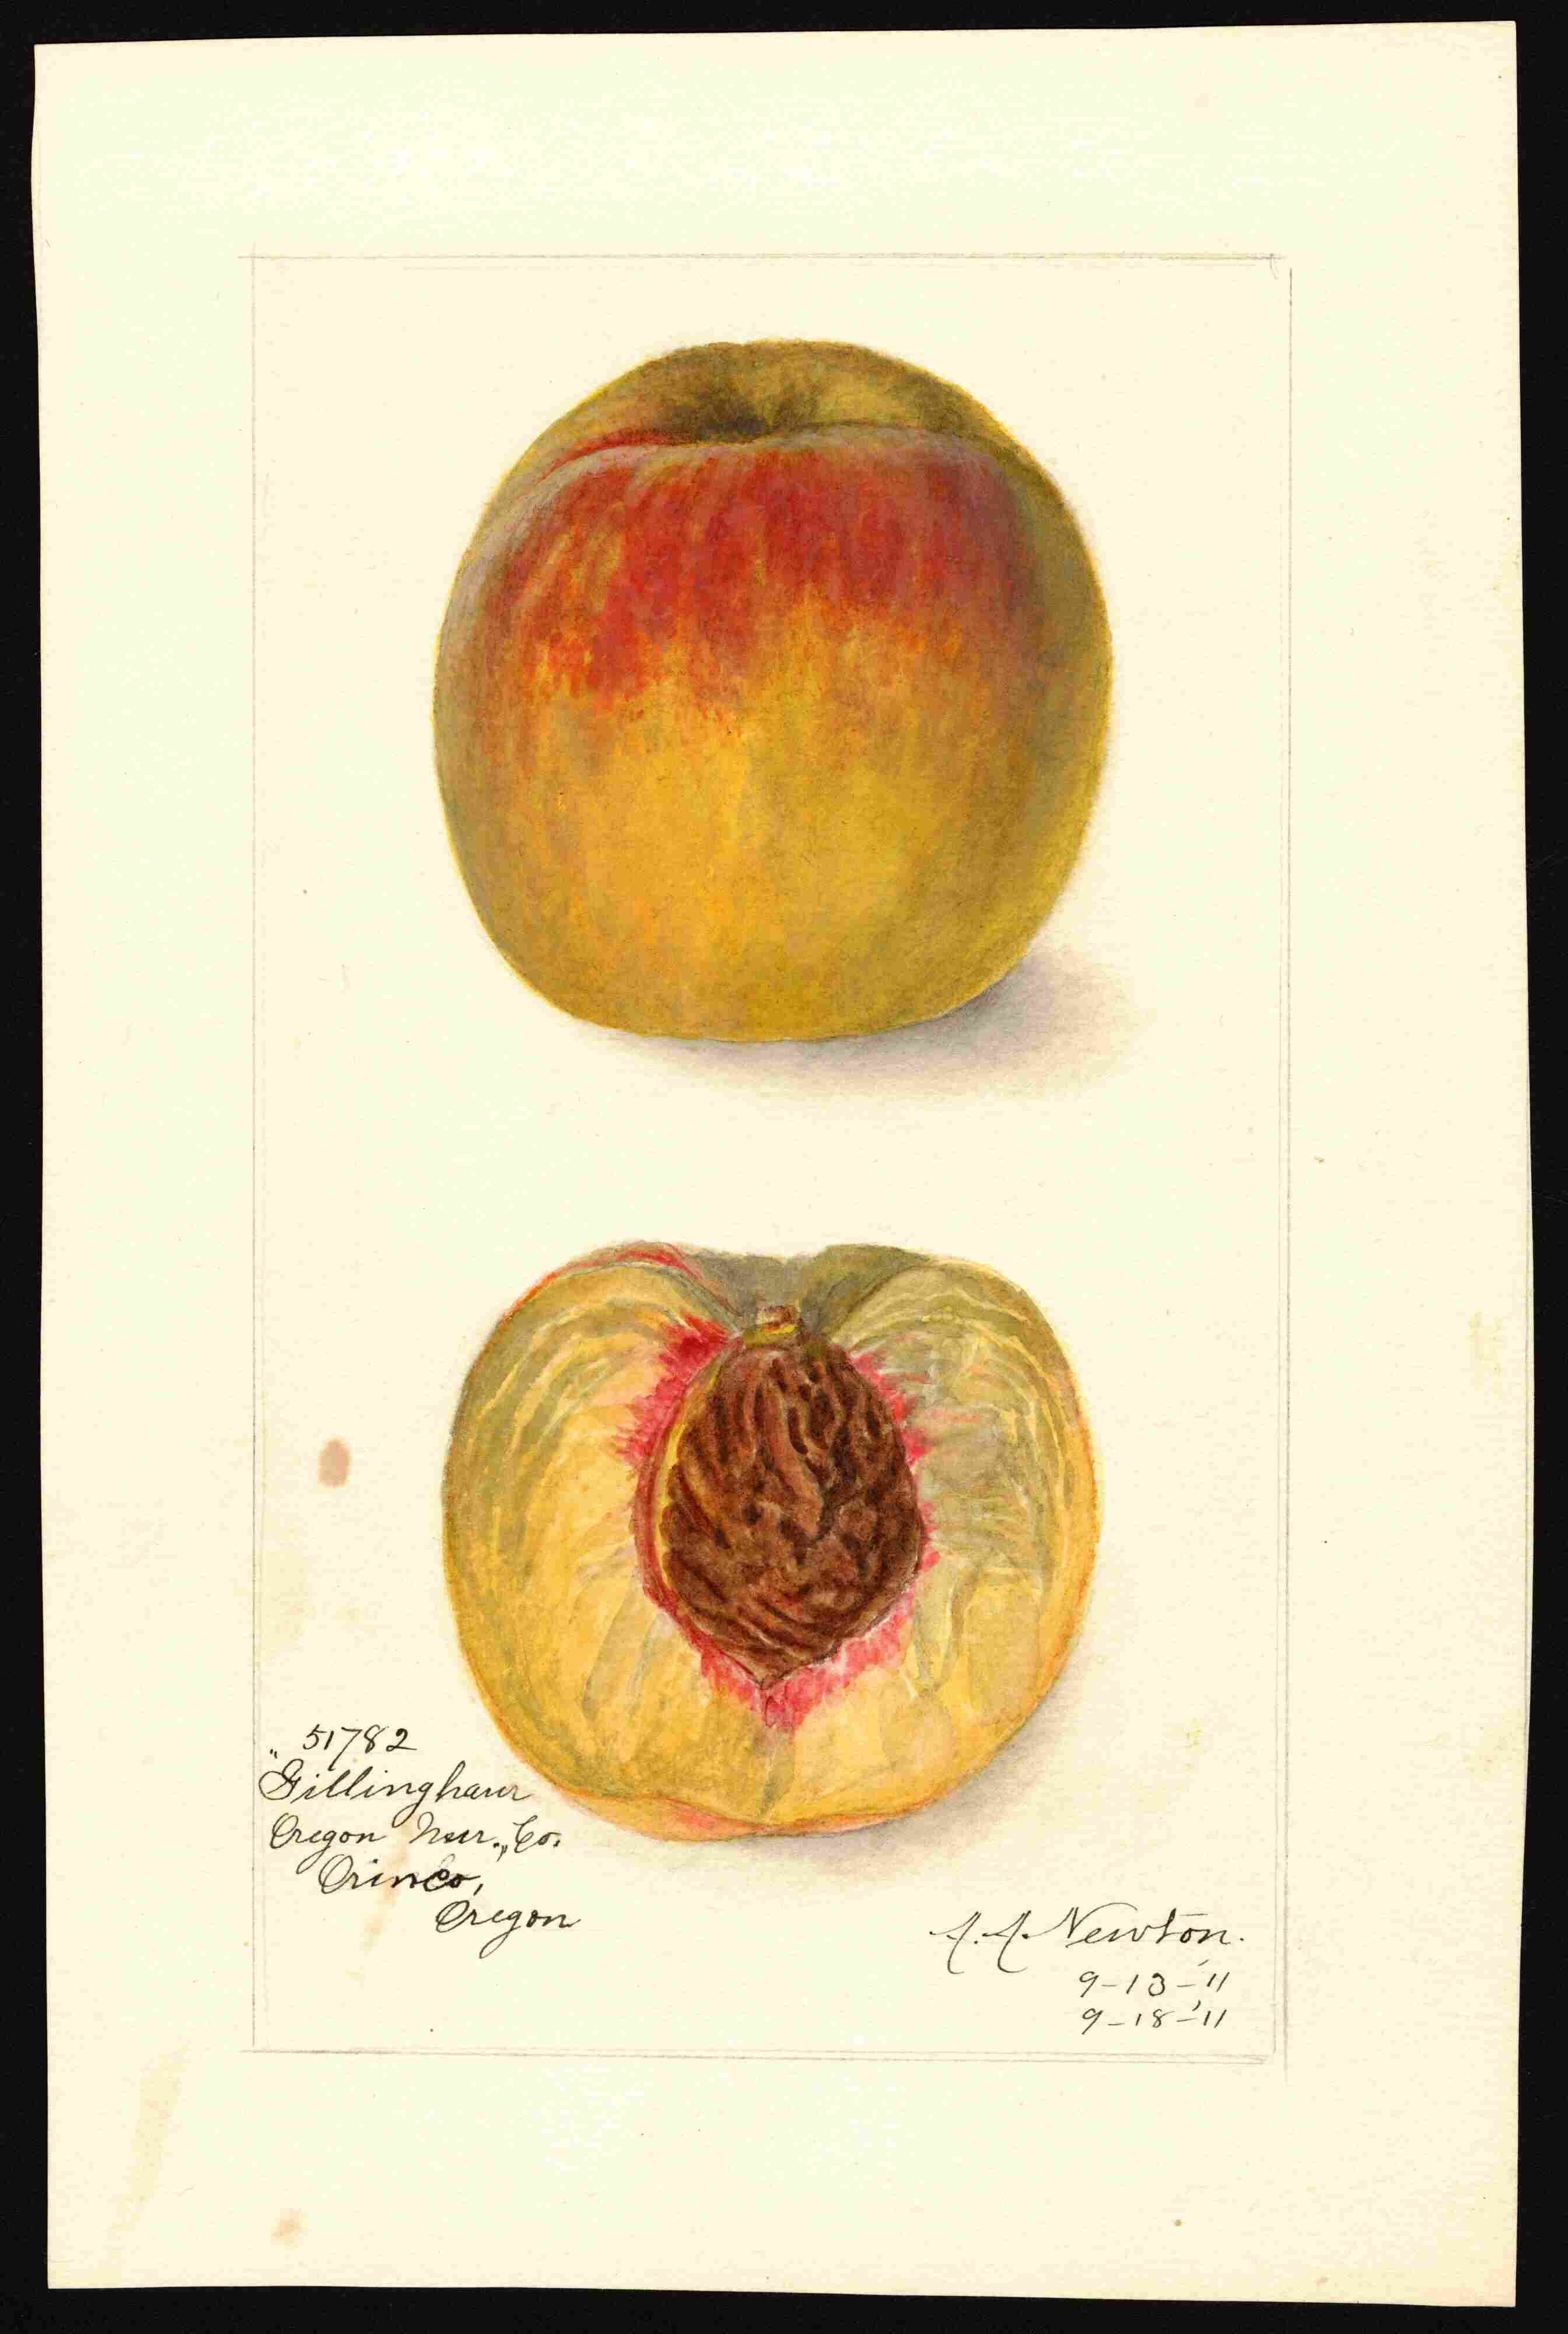 51782
"Gillingham
Oregon Nur., Co.
Orinco,
Oregon
A. A. Newton.
9-13-'11
9-18-'11